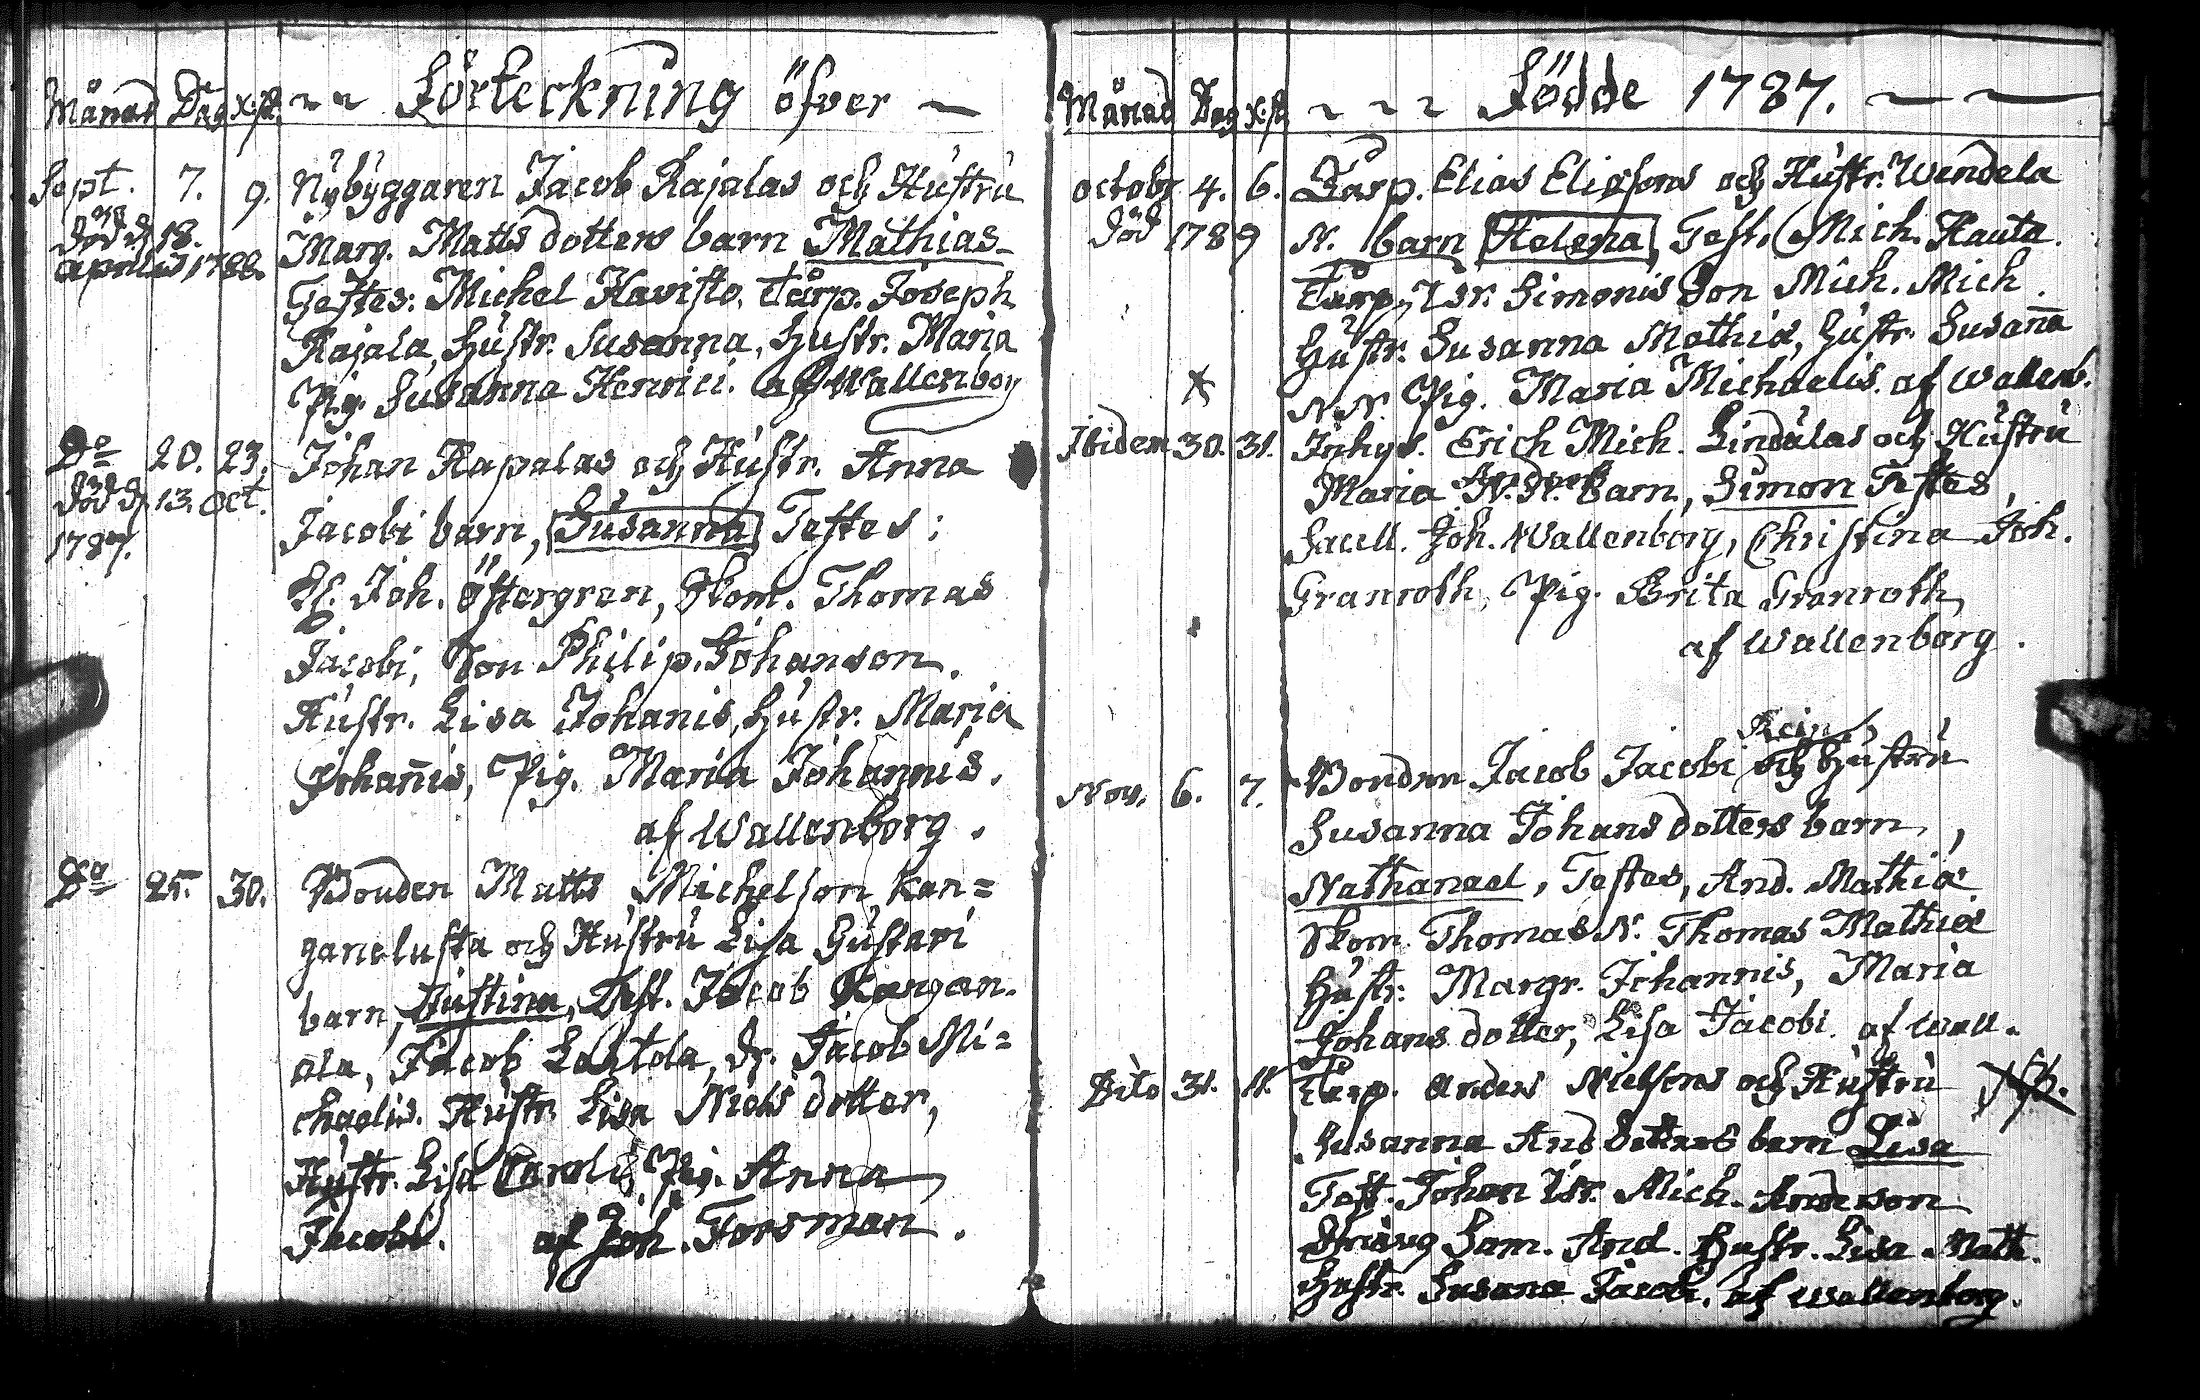 Månad Dag xst. Förteckning öfver
Sept. 7. 9. Nybyggaren Jacob Rajalas och Hustru
död d 18. Marg. Matts dotters barn Mathias
aprilis 1788. Testes: Michel Havisto, Torp. Joseph
Rajala, Hustr. Susanna, Hustr. Maria
Pig. Susanna Henrici. af Wallenborg
Do 20. 23. Johan Rapalas och Hustr. Anna
död d 13. Oct. Jacobi barn, Susanna Testes:
1787.
Joh. Östergren, Skom. Thomas
Jacobi, Son Philip Johanson.
Hustr. Lisa Johanis, Hustr. Maria
Johanis, Pig. Maria Johannis.
af Wallenborg.
Do 25. 30. Bonden Matts Michelson kan=
ganelusta och Hustru Lisa Gustavi
barn, Justina, Test. Jacob Kangan-
ala, Jacob Lahtola, Dr. Jacob Mi=
chaelis. Hustr. Lisa Niels dotter,
Hustr. Lisa Caroli, Pig. Anna
Jacobi. af Joh. Forsman.
Månad Dag xst Födde 1787.
octobr 4. 6. Torp. Elias Eliasons och Hustr. Wendela
Död 1789 N. barn Helena, Test. Mich. Hauta
Torp. Isr. Simonis Son Mich. Mich.
Hustr. Susanna Mathiæ, Hustr. Susana
N.N. Pig. Maria Michaelis. af Wallenb.
Ibidem 30. 31. Inhys. Erich Mich. Lindulas och Hustru
Maria N.N. barn, Simon Testes,
Sacell. Joh. Wallenborg, Christina Joh.
Granroth, Pig. Brita Granroth,
af Wallenborg.
Rein
Nov. 6. 7. Bonden Jacob Jacobi och Hustru
Susanna Johans dotters barn,
Nathanael, Testes, And. Mathiæ
Skom. Thomas N. Thomas Mathiæ
Hustr. Margr. Johannis, Maria
Johans dotter, Lisa Jacobi. af Wall.
Dito 31. 11. Torp. Anders Nielsons och Hustru NB.
Susanna And dotters barn Lisa
Test. Johan Isr. Mich. Anderson
Dräng Sam. And. Hustr. Lisa Math.
Hustr. Susana Jacobi. af Wallenborg.